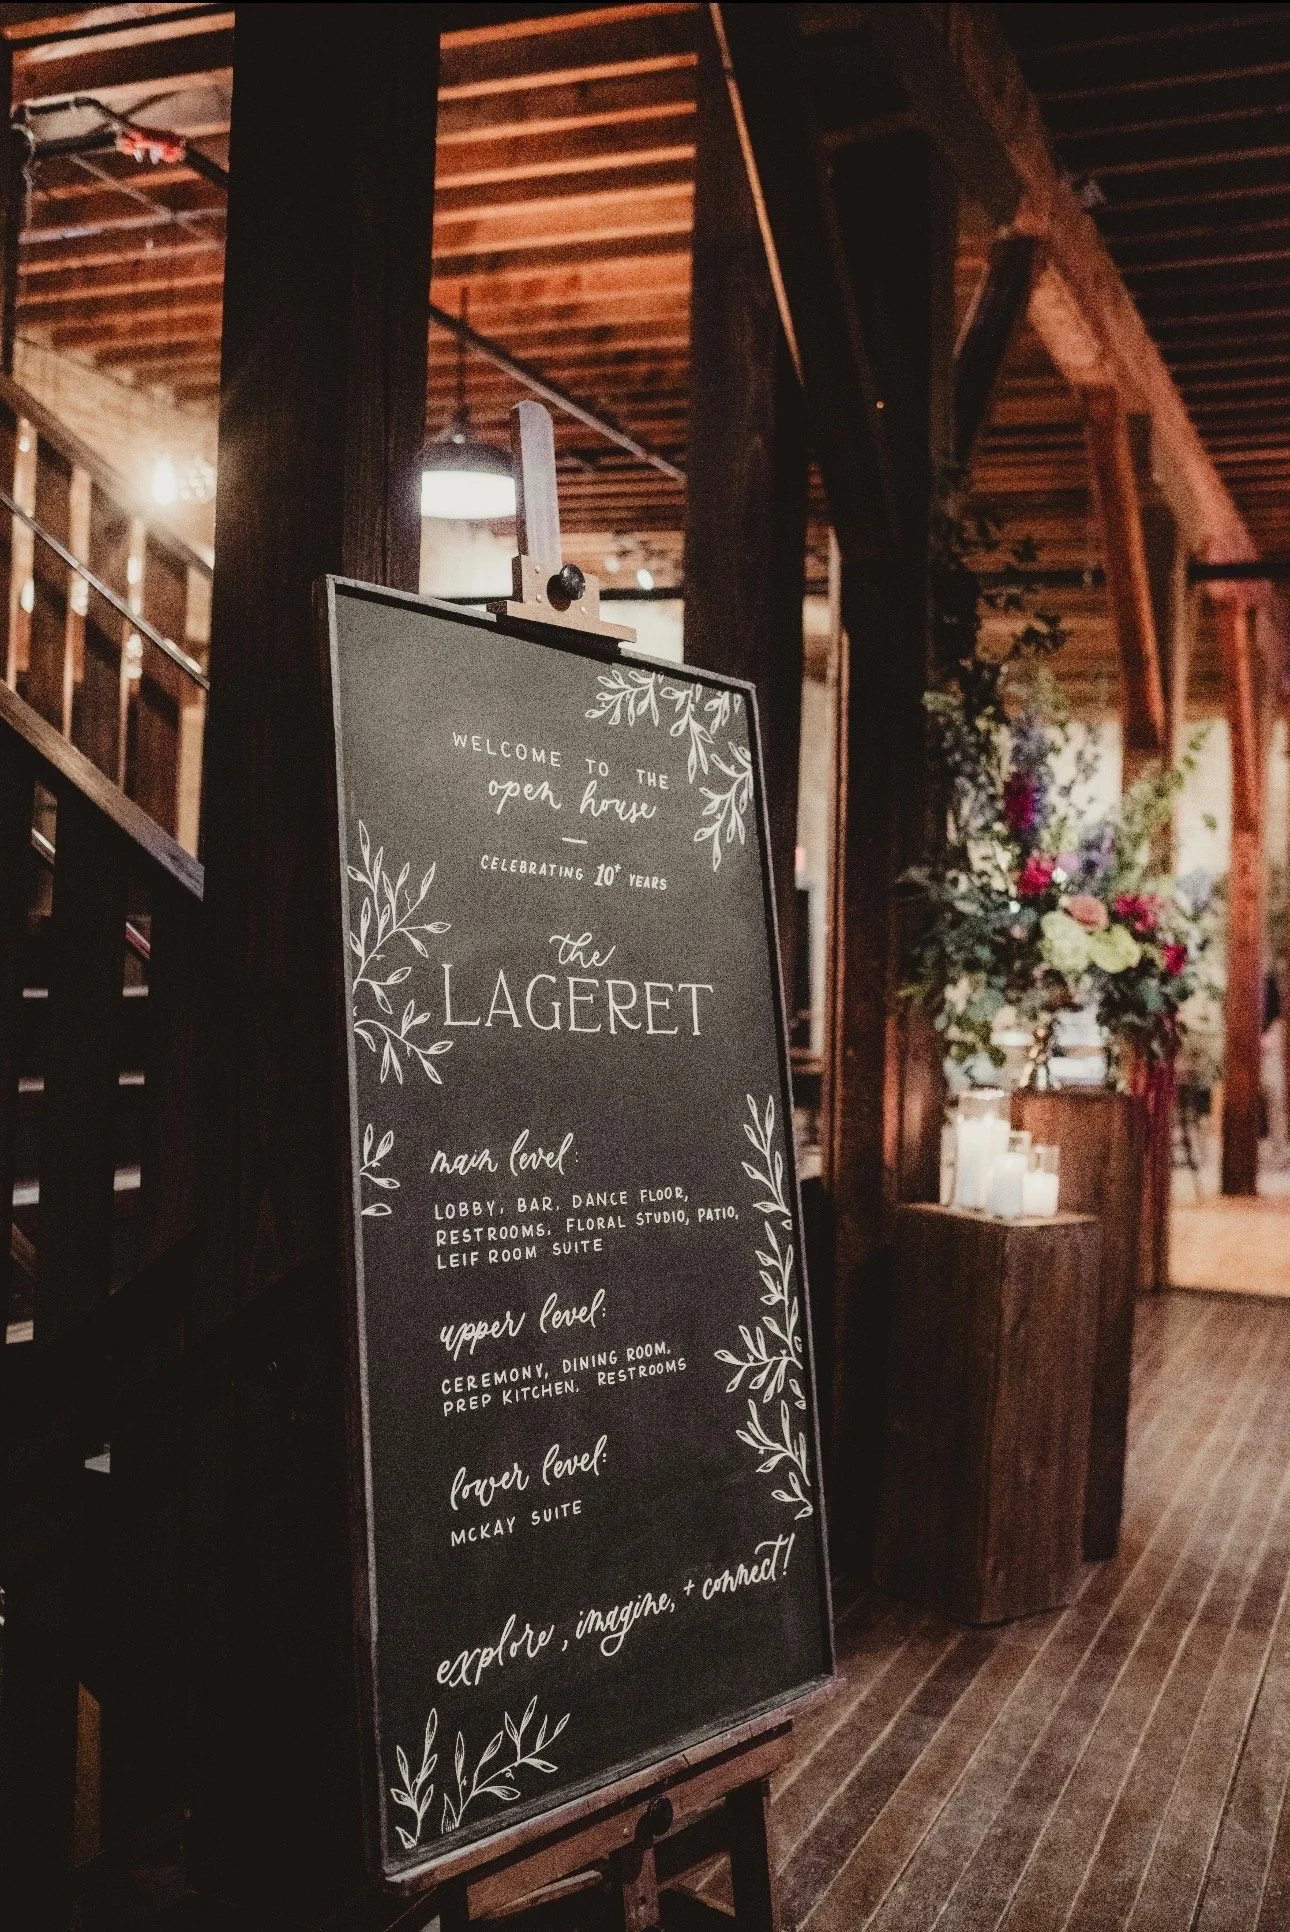 WELCOME TO THE
open house
CELEBRATING 10+ YEARS
the
LAGERET
main level:
LOBBY, BAR, DANCE FLOOR,
RESTROOMS, FLORAL STUDIO, PATIO,
LEIF ROOM SUITE
upper level:
CEREMONY, DINING ROOM,
PREP KITCHEN, RESTROOMS
lower level:
MCKAY SUITE
explore, imagine, + connect!